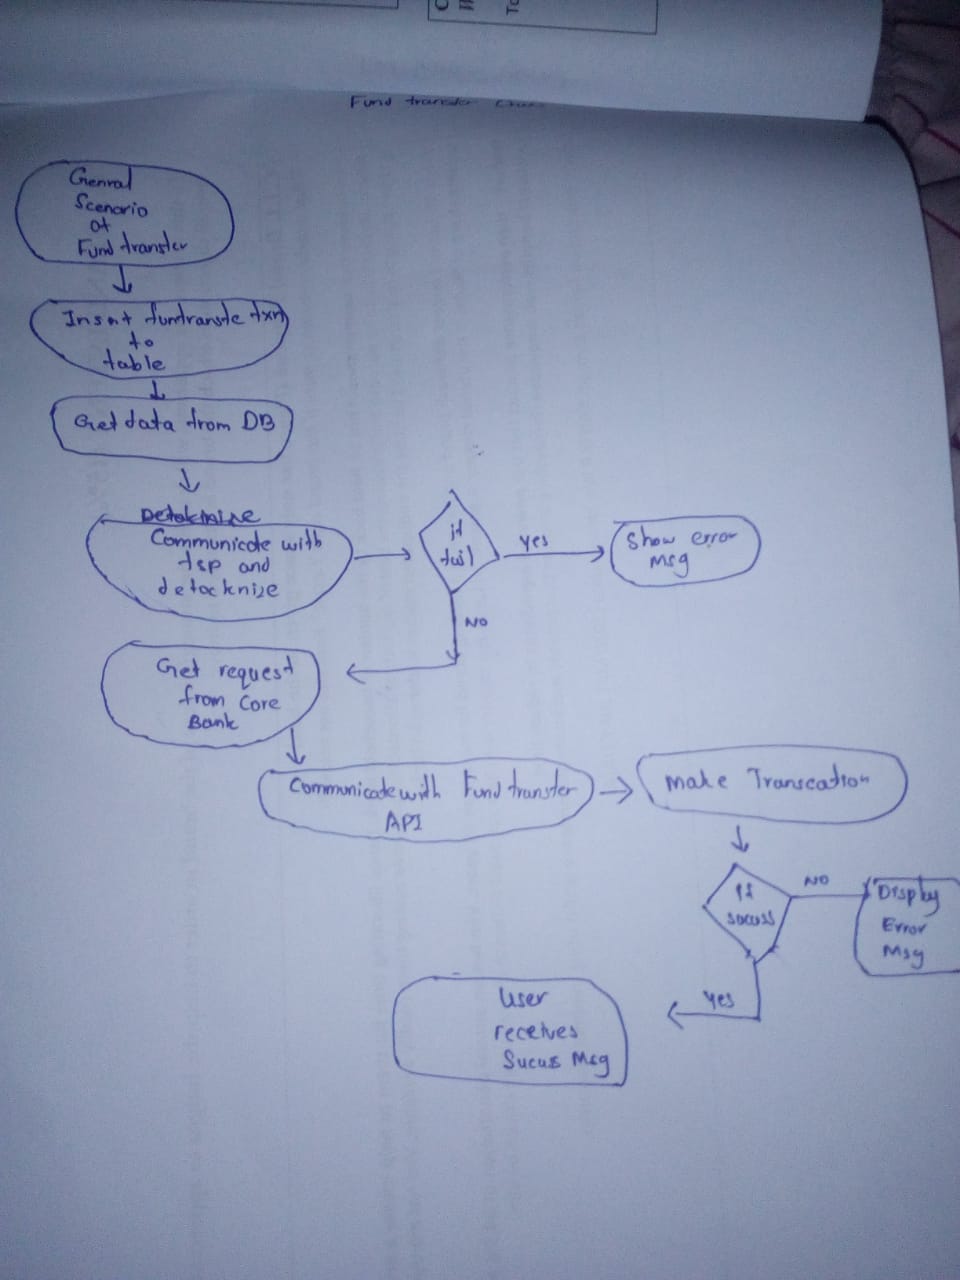 Fund transfer
Genral
Scenario
of
Fund transfer
Insert fundtranste txn
to
table
Get data from DB
Detoknize
Communicate with
tsp and
detocknize
if
fail
yes
Show error
msg
NO
Get request
from Core
Bank
Communicate with Fund transfer
API
make Transcation
If
sucuss
NO
Display
Error
Msg
yes
User
receives
Sucuss Msg